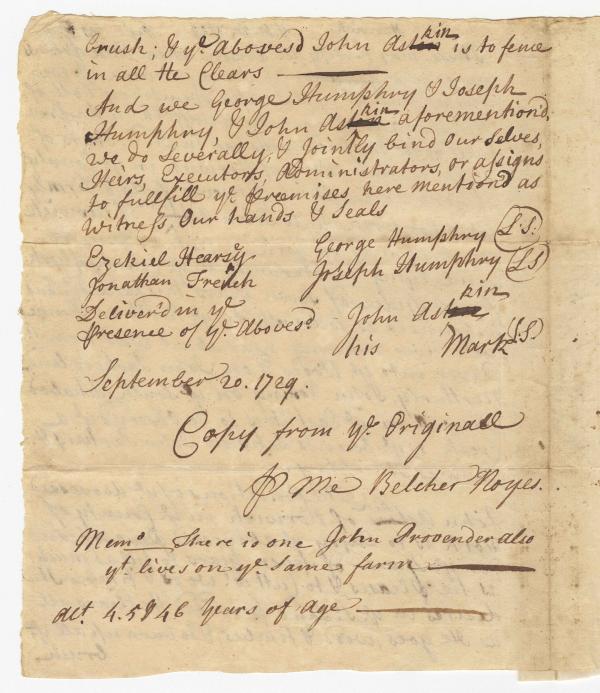 brush; & ye. abovesd John Askin is to fence
in all the Clears
And we George Humphry & Joseph
Humphry, & John Askin aforemention'd,
we do Severally, & Jointly bind Our Selves,
Heirs, Executors, Administrators, or assigns
to fullfill ye. Premises here mentiond as
witness Our hands & Seals
Ezekiel Hearsey George Humphry L.S.
Jonathan French Joseph Humphry LS
Deliver'd in ye John Askin
Presence of ye. Abovesd. his Mark L.S.
September 20. 1729.
Copy from ye. Originall
P Me Belcher Noyes.
Memo There is one John Provender also
yt. lives on ye. Same farm
Æt. 45 & 46 Years of Age